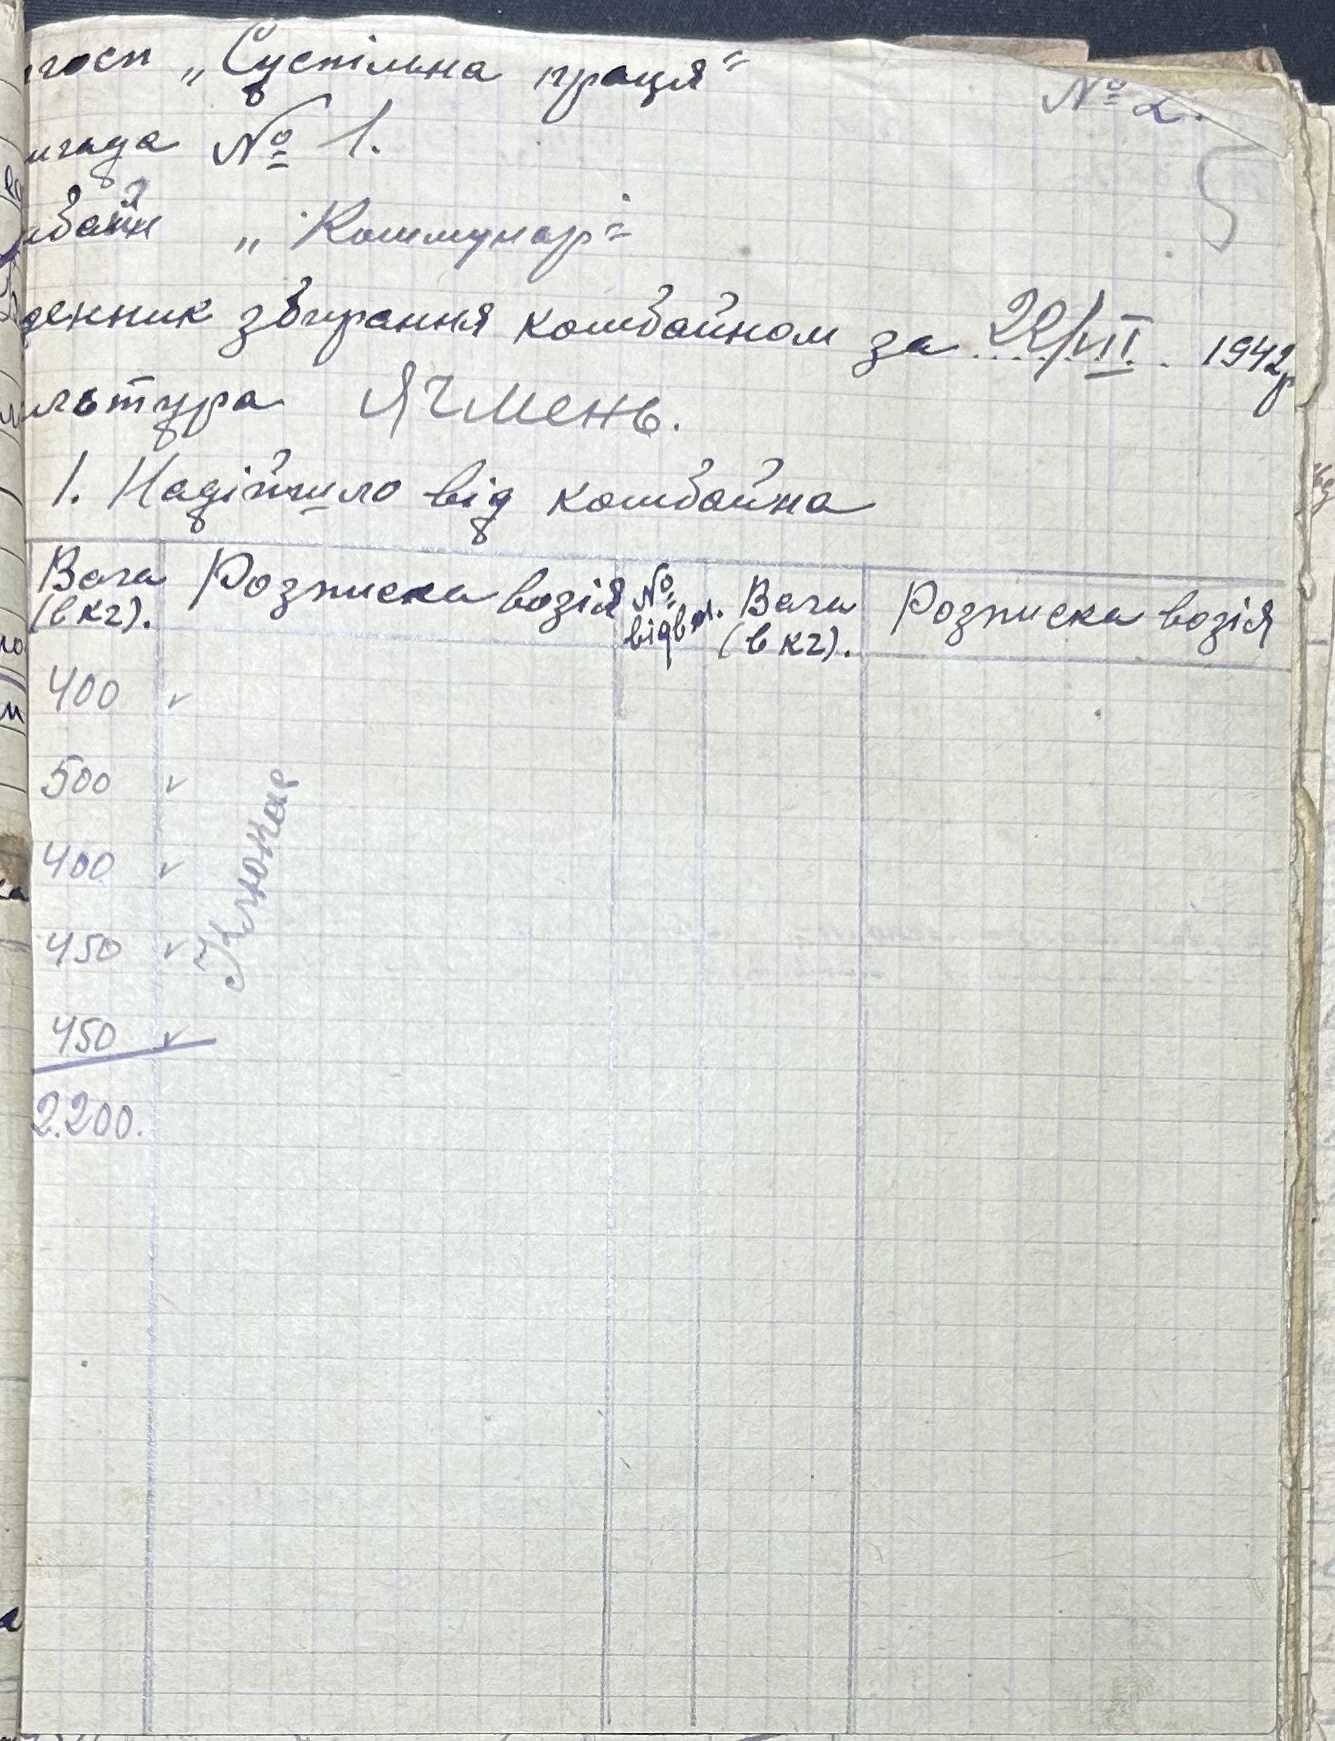 госп „Суспільна праця"
№ 2.
игада № 1.
5
мбайн „Коммунар"
денник збирання комбайном за 22/VII. 1942р
льтура Ячмень.
1. Надійшло від комбайна
Вага (в кг). Розписка возія № відвоз. Вага (в кг). Розписка возія
400 ✓
500 ✓
400 ✓
450 ✓
450 ✓
2.200.